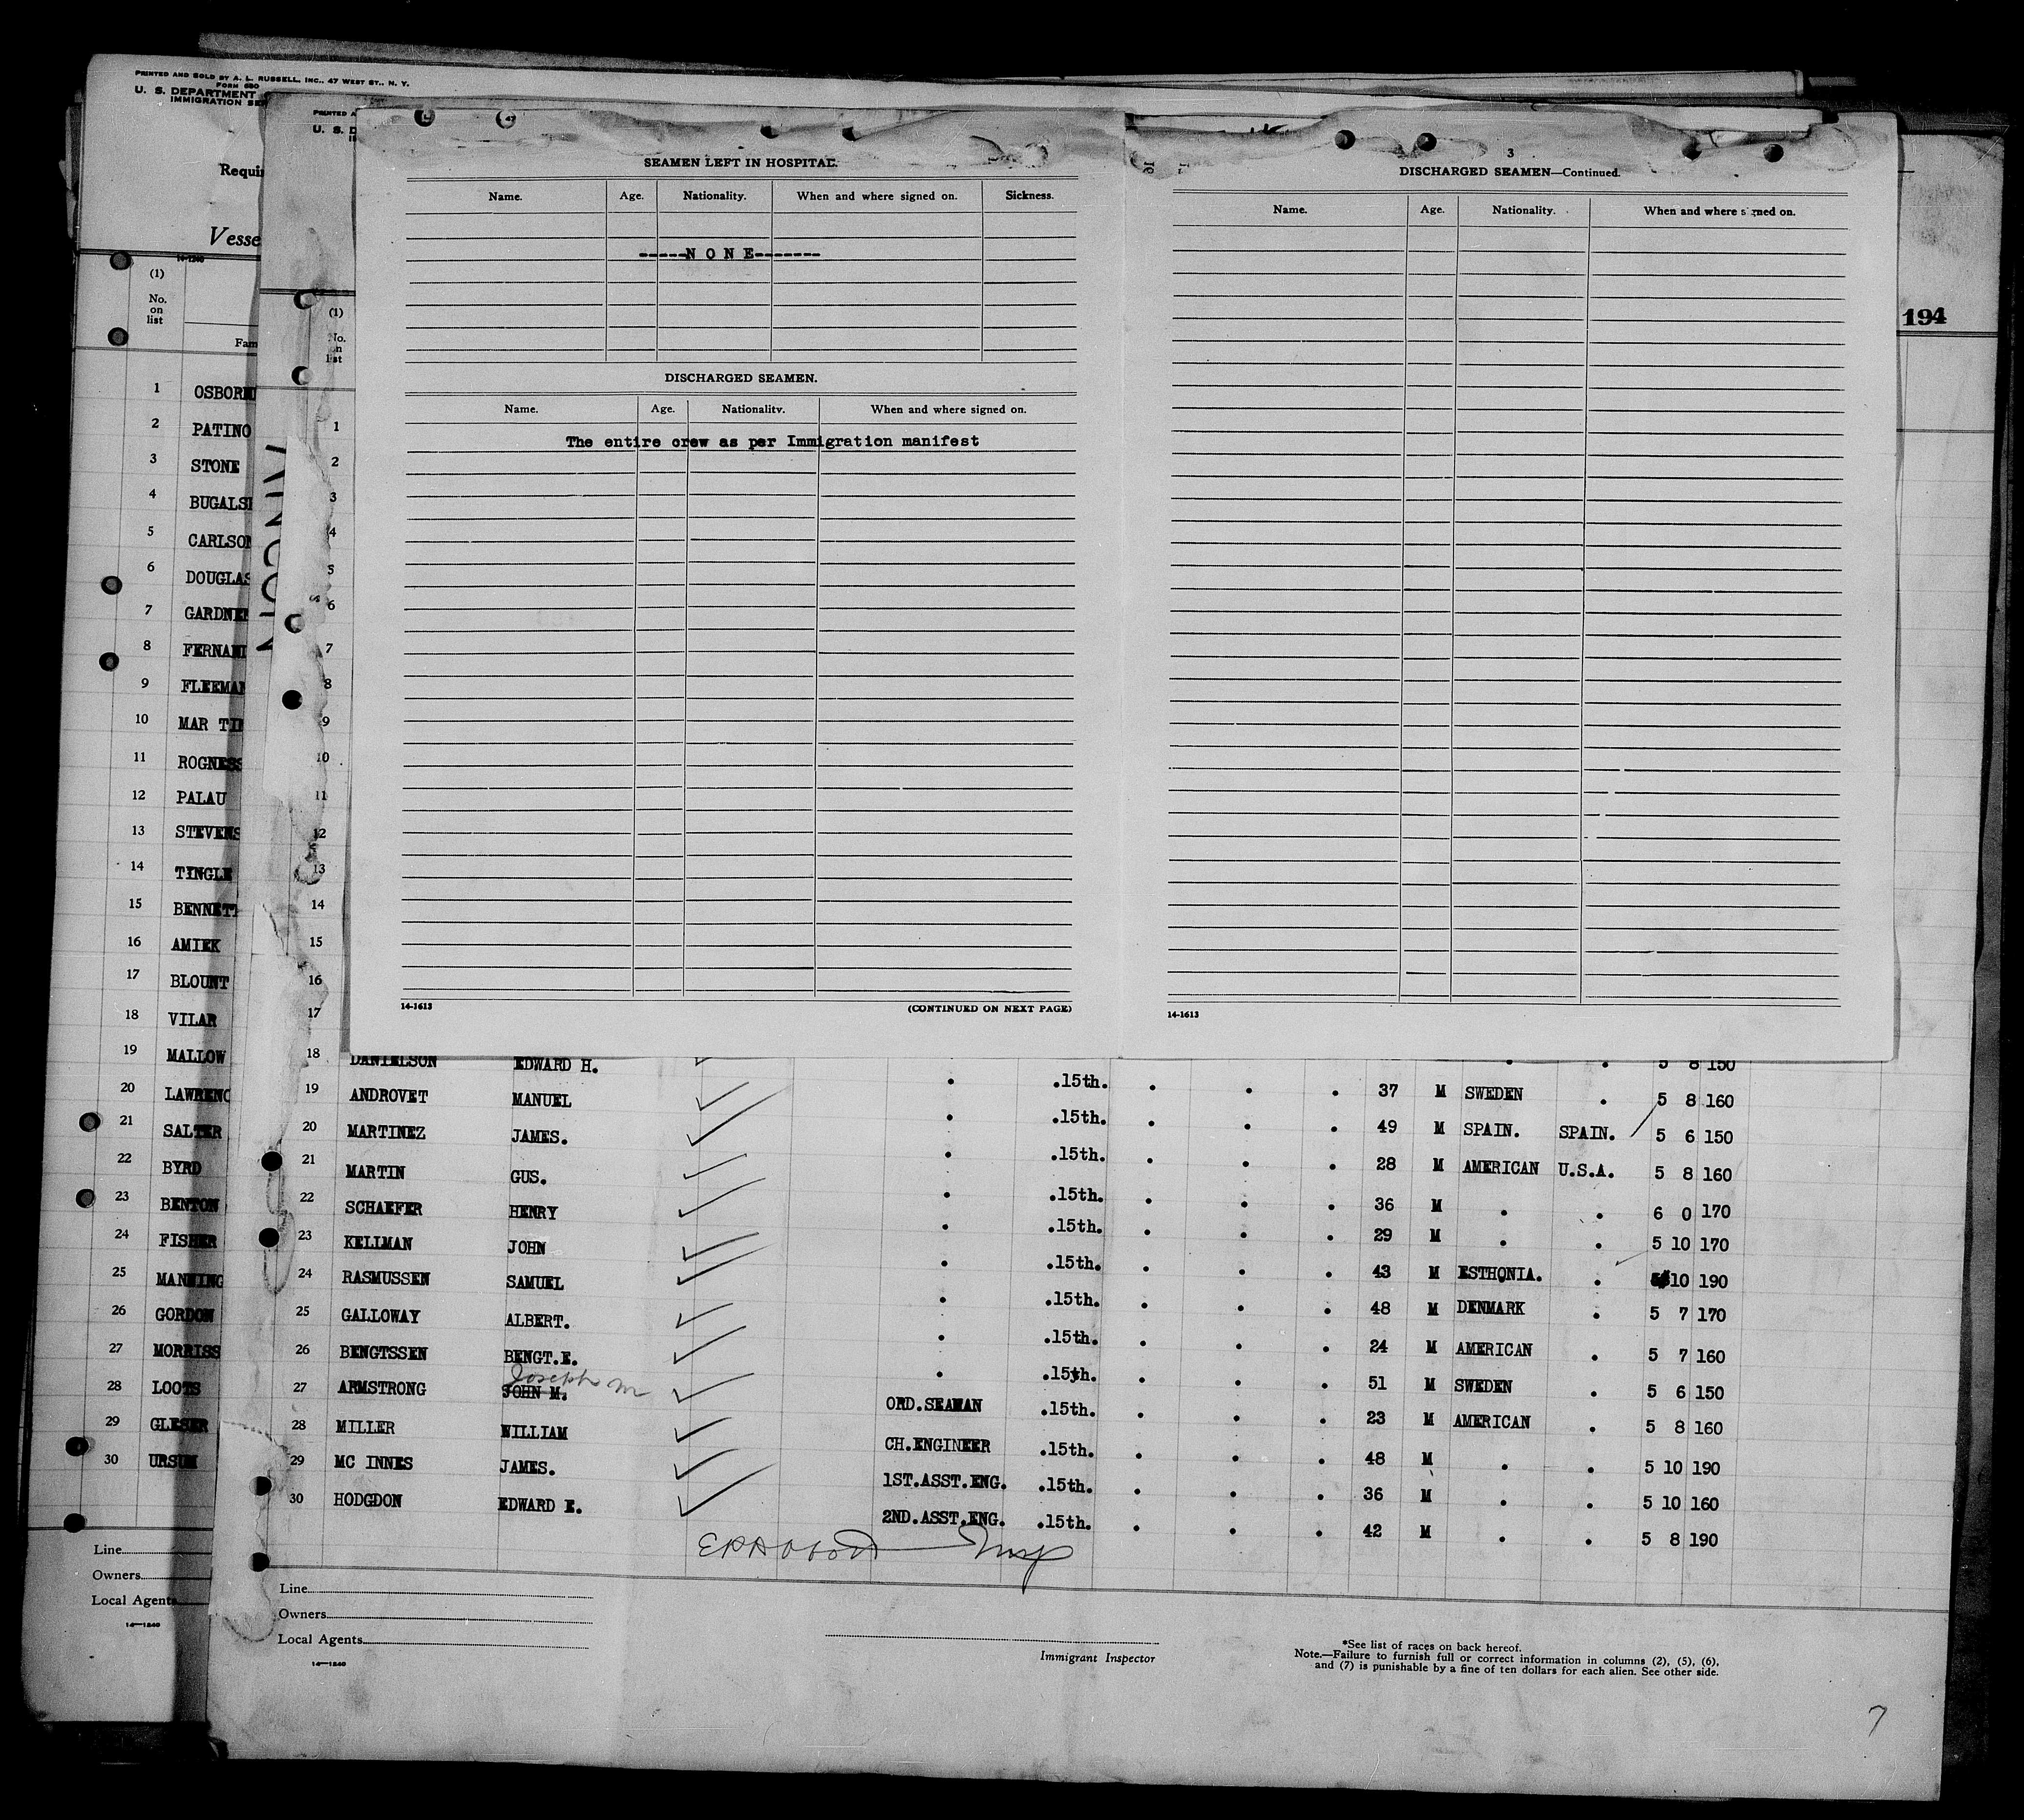 PRINTED AND SOLD BY A. L. RUSSELL, INC., 47 WEST ST., N. Y.
FORM 680
U. S. DEPARTMENT
IMMIGRATION SE
Requi
Vesse
14-1240
(1)
No. on list
Fam
1 OSBORN
2 PATINO
3 STONE
4 BUGALS
5 CARLSON
6 DOUGLAS
7 GARDNE
8 FERNAN
9 FLEEMA
10 MAR TI
11 ROGNESS
12 PALAU
13 STEVENS
14 TINGLE
15 BENNETT
16 AMIEK
17 BLOUNT
18 VILAR
19 MALLOW
20 LAWRENC
21 SALTER
22 BYRD
23 BENTON
24 FISHER
25 MANNING
26 GORDON
27 MORRISS
28 LOOTS
29 GLESER
30 URSUM
Line
Owners
Local Agents
14-1240
PRINTED A
U. S. D
(1)
No. on list
1
2
3
4
5
6
7
8
9
10
11
12
13
14
15
16
17
SEAMEN LEFT IN HOSPITAL.
Name. Age. Nationality. When and where signed on. Sickness.
-----N O N E-------
DISCHARGED SEAMEN.
Name. Age. Nationality. When and where signed on.
The entire crew as per Immigration manifest
14-1613 (CONTINUED ON NEXT PAGE)
3
DISCHARGED SEAMEN—Continued.
Name. Age. Nationality. When and where signed on.
14-1613
194
18 DANIELSON EDWARD H. . . . 5 8 150
19 ANDROVET MANUEL . .15th. . . . 37 M SWEDEN . 5 8 160
20 MARTINEZ JAMES. . .15th. . . . 49 M SPAIN. SPAIN. 5 6 150
21 MARTIN GUS. . .15th. . . . 28 M AMERICAN U.S.A. 5 8 160
22 SCHAEFER HENRY . .15th. . . . 36 M . . 6 0 170
23 KELLMAN JOHN . .15th. . . . 29 M . . 5 10 170
24 RASMUSSEN SAMUEL . .15th. . . . 43 M ESTHONIA. . 5 10 190
25 GALLOWAY ALBERT. . .15th. . . . 48 M DENMARK . 5 7 170
26 BENGTSSEN BENGT.E. . .15th. . . . 24 M AMERICAN . 5 7 160
Joseph M
27 ARMSTRONG JOHN M. . .15th. 51 M SWEDEN . 5 6 150
28 MILLER WILLIAM ORD.SEAMAN .15th. . . . 23 M AMERICAN . 5 8 160
29 MC INNES JAMES. CH.ENGINEER .15th. . . . 48 M . . 5 10 190
30 HODGDON EDWARD E. 1ST.ASST.ENG. .15th. . . . 36 M . . 5 10 160
2ND.ASST.ENG. .15th. . . . 42 M . . 5 8 190
Line
Owners
Local Agents
14-1240
Immigrant Inspector
*See list of races on back hereof.
Note.—Failure to furnish full or correct information in columns (2), (5), (6),
and (7) is punishable by a fine of ten dollars for each alien. See other side.
7